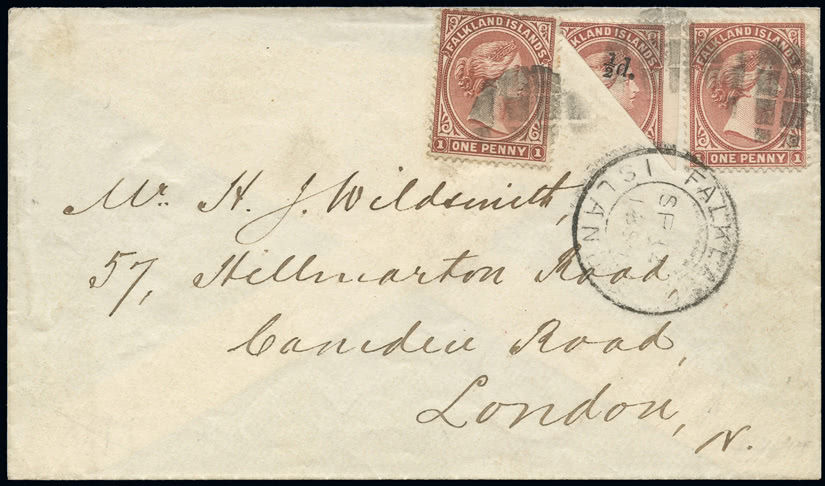 FALKLAND ISLANDS
1 ONE PENNY 1
KLAND ISLANDS
½d.
FALKLAND ISLANDS
ONE PENNY 1
FALKLAND
ISLAN
SP
Mr. H. J. Wildsmith,
57, Hillmarton Road
Camden Road,
London,
N.